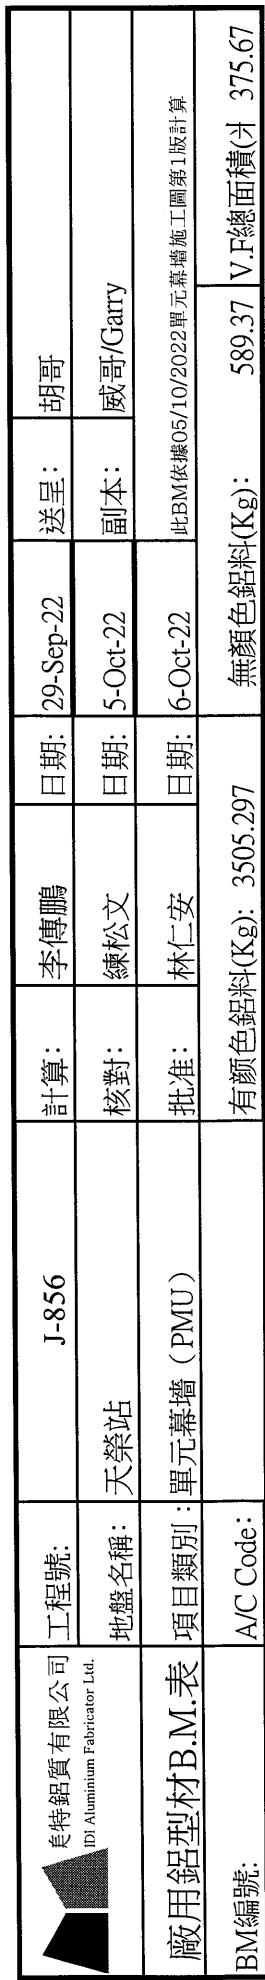 美特鋁質有限公司
IDI Aluminium Fabricator Ltd.
工程號: J-856 計算: 李傳鵬 日期: 29-Sep-22 送呈: 胡哥
地盤名稱: 天榮站 核對: 練松文 日期: 5-Oct-22 副本: 威哥/Garry
廠用鋁型材B.M.表
項目類別: 單元幕墻（PMU） 批准: 林仁安 日期: 6-Oct-22 此BM依據05/10/2022單元幕墻施工圖第1版計算
BM編號: A/C Code: 有颜色鋁料(Kg): 3505.297 無顏色鋁料(Kg): 589.37 V.F總面積( 375.67